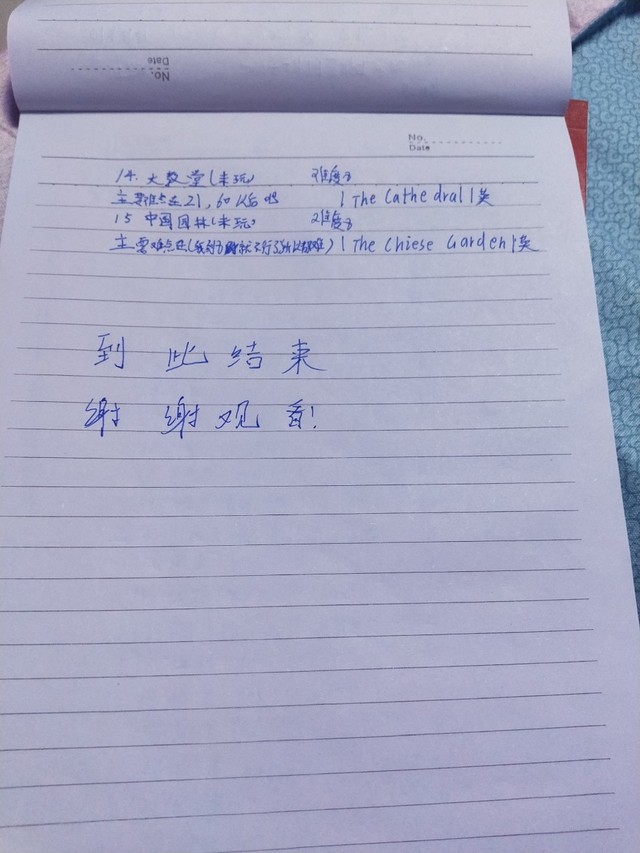 No.
Date
No.
Date
14. 大教堂(未玩) 难度:3
主要难点还21,60以后吧 | The Cathedral | 英
15 中国园林(未玩) 难度:3
主要难点还 | The Chiese Garden | 英
到此结束
谢谢观看!